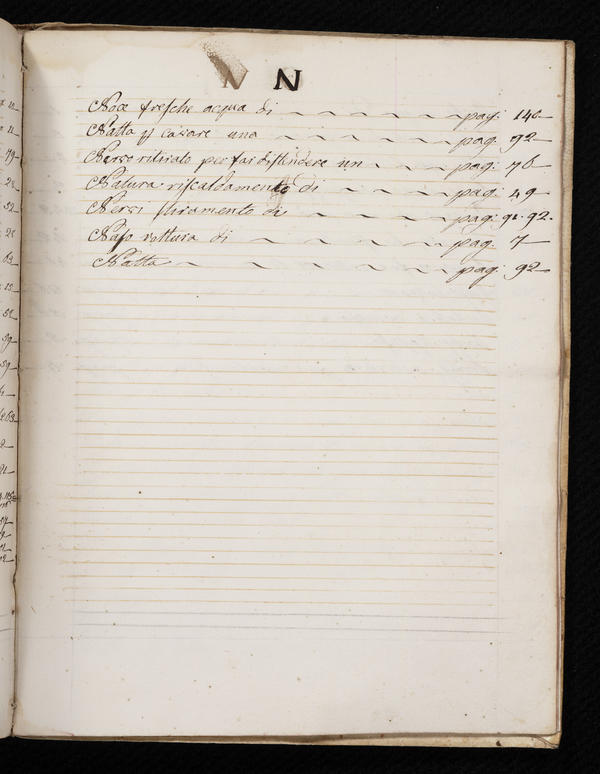 N N
Noce fresche acqua di pag: 140
Natta p cavare una pag. 92
Nervo ritirato per far distendere un pag: 76
Natura riscaldamento di pag: 49
Nervi stiramento di pag: 91. 92.
Naso rottura di pag. 7
Natta pag: 92